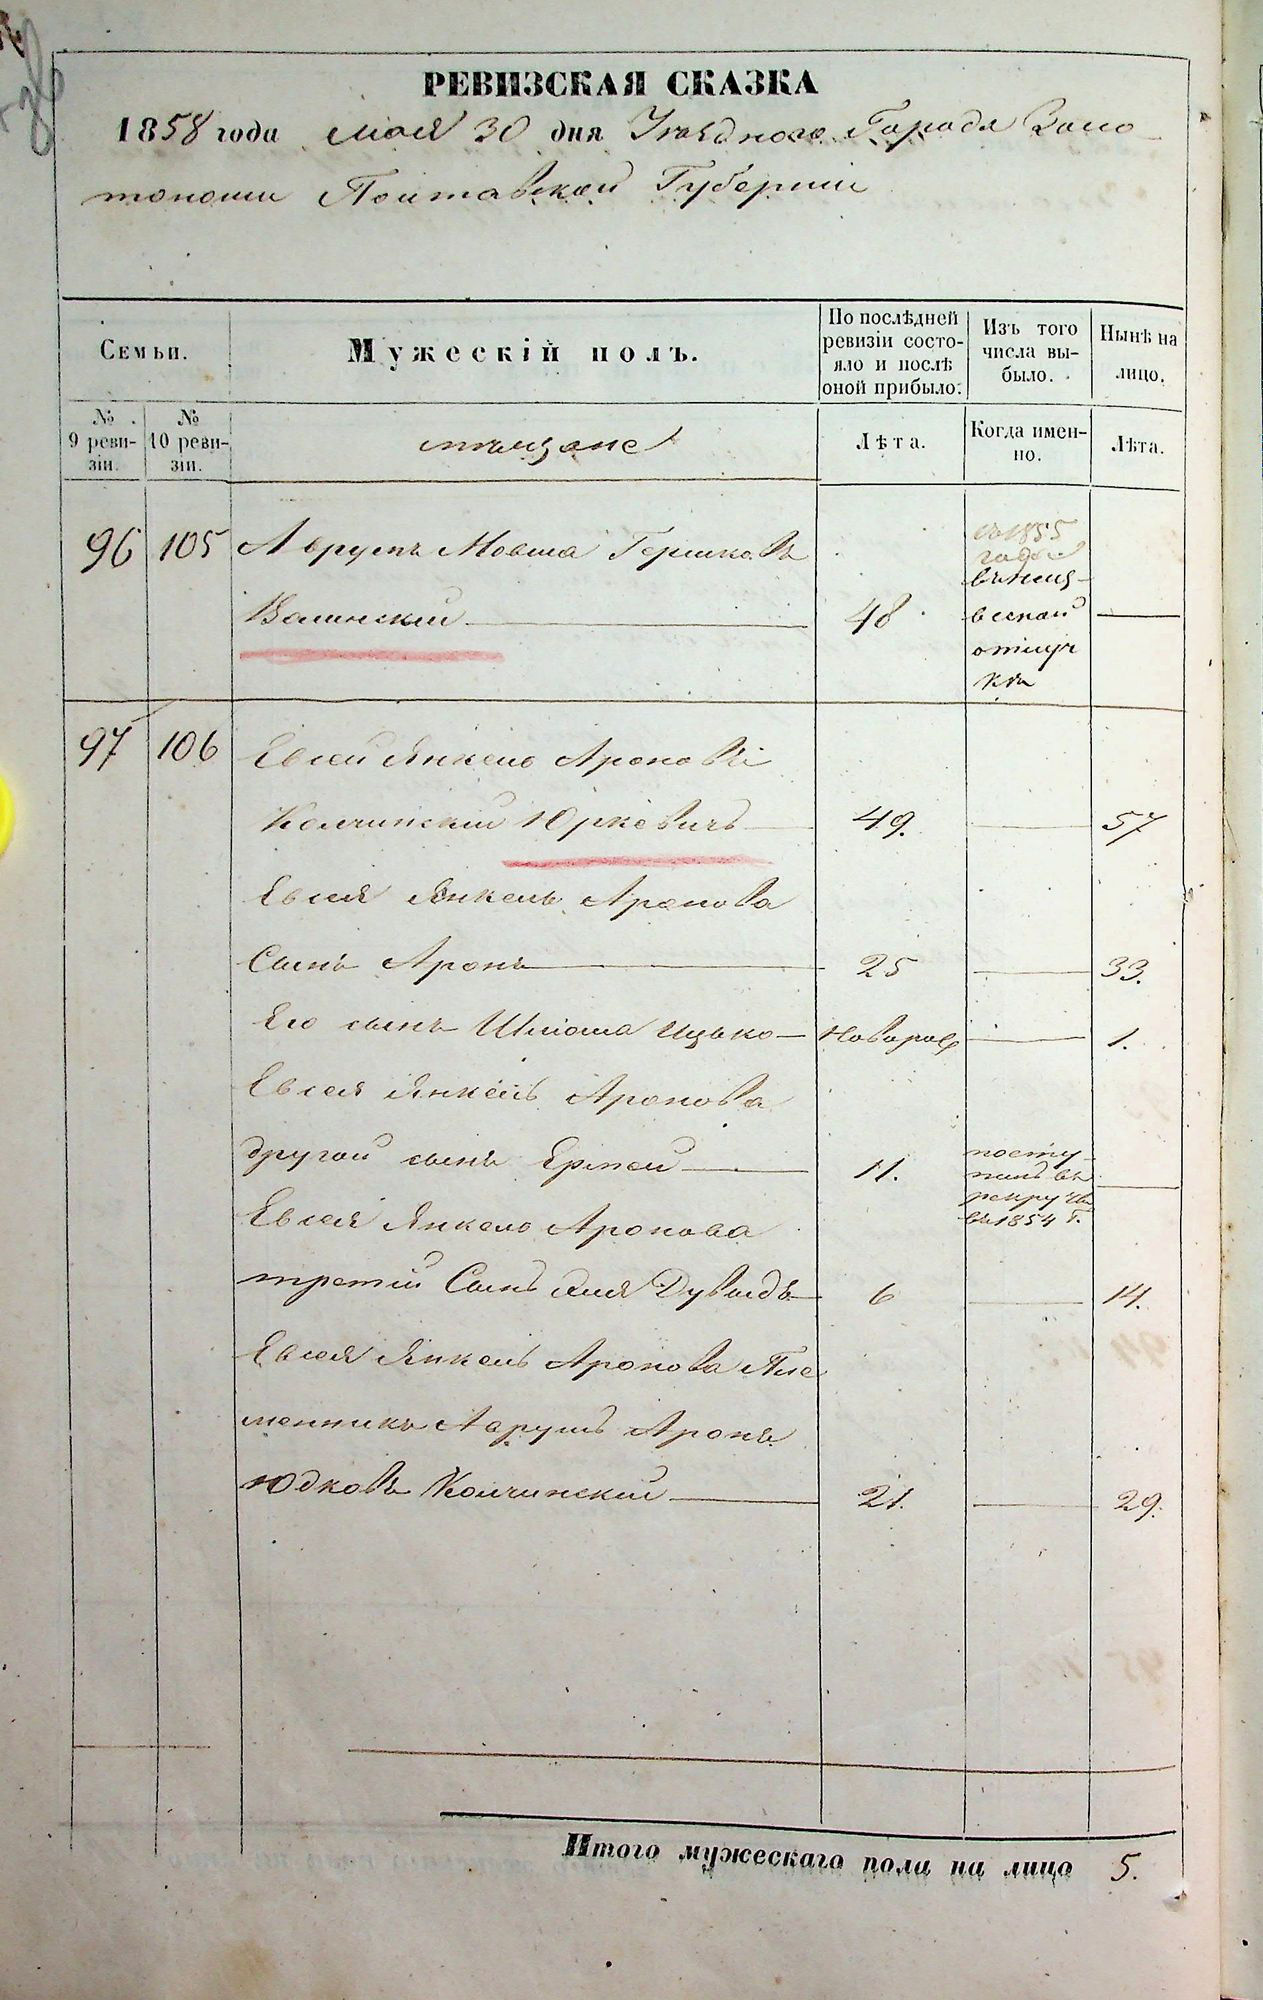 РЕВИЗСКАЯ СКАЗКА
1858 года Мая 30 дня Уезднаго Города Золо-
тоноши Полтавской Губернии
Семьи.
Мужескій полъ.
По послѣдней ревизіи состо-
яло и послѣ оной прибыло.
Изъ того числа вы-
было.
Нынѣ на лицо.
№ 9 реви-
зіи.
№ 10 реви-
зіи.
мѣщане
Лѣта.
Когда имен-
но.
Лѣта.
96 105 Аврумъ Мовша Гершковъ
Волинский 48
съ 1855
года
въ неиз-
вѣсной
отлуч
кѣ
97 106 Евсей Янкель Ароновъ
Колчинский Юркевичъ 49. 57
Евсея Янкель Аронова
Сынъ Аронъ 25 33.
Его сынъ Шлиома Ицько Новорож 1.
Евсея Янкель Аронова
другой сынъ 11.
посту-
пилъ въ
рекруты
въ 1854 г.
Евсея Янкель Аронова
третий Сынъ Дувидъ 6 14.
Евсея Янкель Аронова Пле
менникъ Аврумъ Аронъ
Юдковъ Колчинский 21. 29.
Итого мужескаго пола на лицо 5.